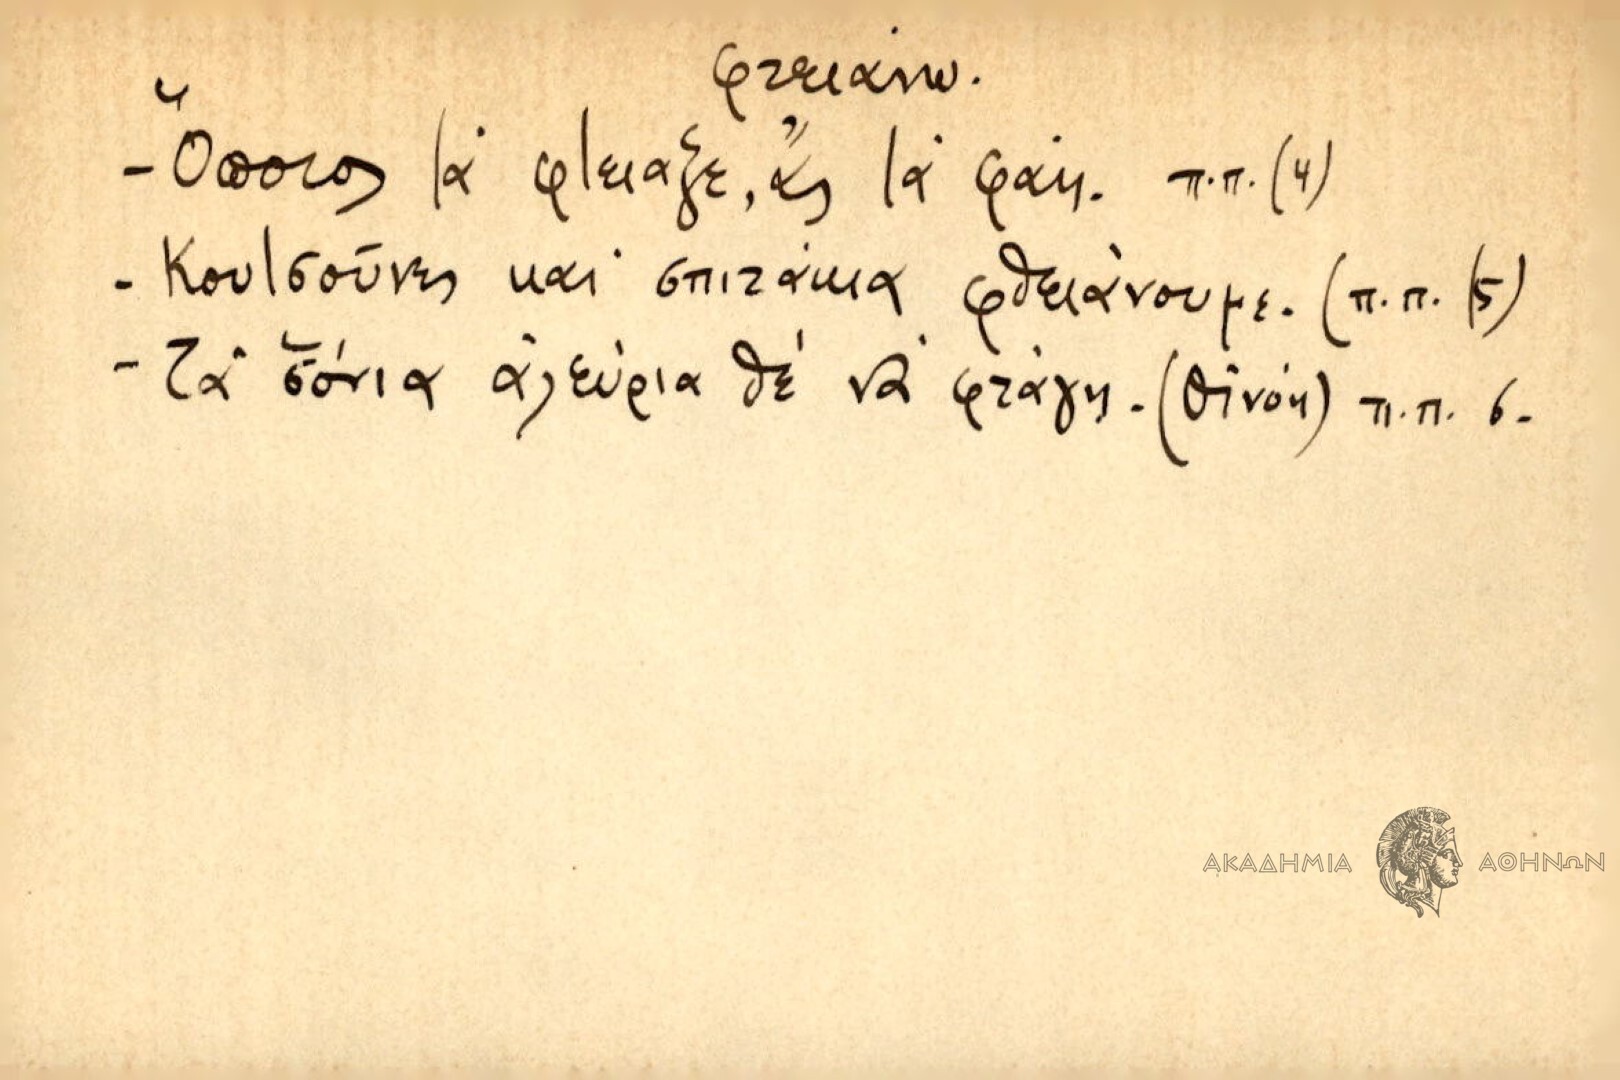 φτειάνω.
- Ὅποιος τἄ φτειαξε, ἄς τά φάη. π.π. (4)
- Κουτσοῦνες καί σπιτάκια φθειάνουμε. (π.π. 15)
- Τά σ̆όνια ἀλεύρια θέ νά φτάγη. (Θῖνόη) π.π. 6.
ΑΚΑΔΗΜΙΑ ΑΘΗΝΩΝ